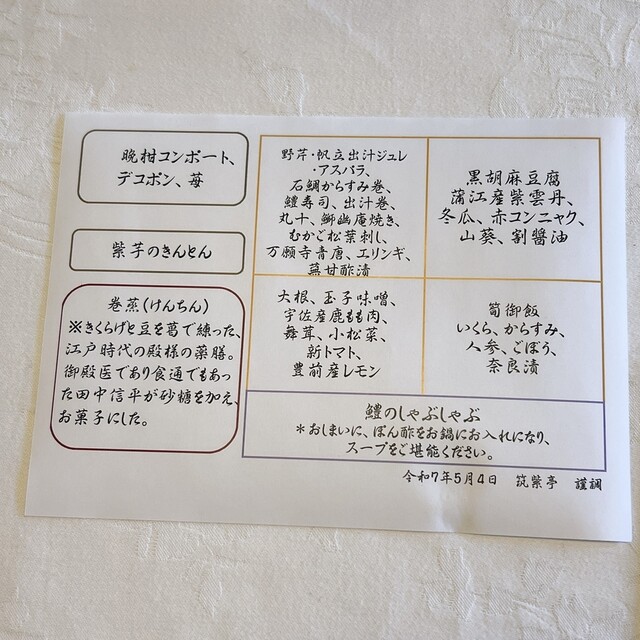 晩柑コンポート、
デコポン、苺
紫芋のきんとん
巻蒸(けんちん)
※きくらげと豆を葛で練った、
江戸時代の殿様の薬膳。
御殿医であり食通でもあっ
た田中信平が砂糖を加え、
お菓子にした。
野芹・帆立出汁ジュレ
・アスパラ、
石鯛からすみ巻、
鱧寿司、出汁巻、
丸十、鰤幽庵焼き、
むかご松葉刺し、
万願寺青唐、エリンギ、
蕪甘酢漬
黒胡麻豆腐
蒲江産紫雲丹、
冬瓜、赤コンニャク、
山葵、割醤油
大根、玉子味噌、
宇佐産鹿もも肉、
舞茸、小松菜、
新トマト、
豊前産レモン
筍御飯
いくら、からすみ、
人参、ごぼう、
奈良漬
鱧のしゃぶしゃぶ
*おしまいに、ぽん酢をお鍋にお入れになり、
スープをご堪能ください。
令和7年5月4日 筑紫亭 謹調